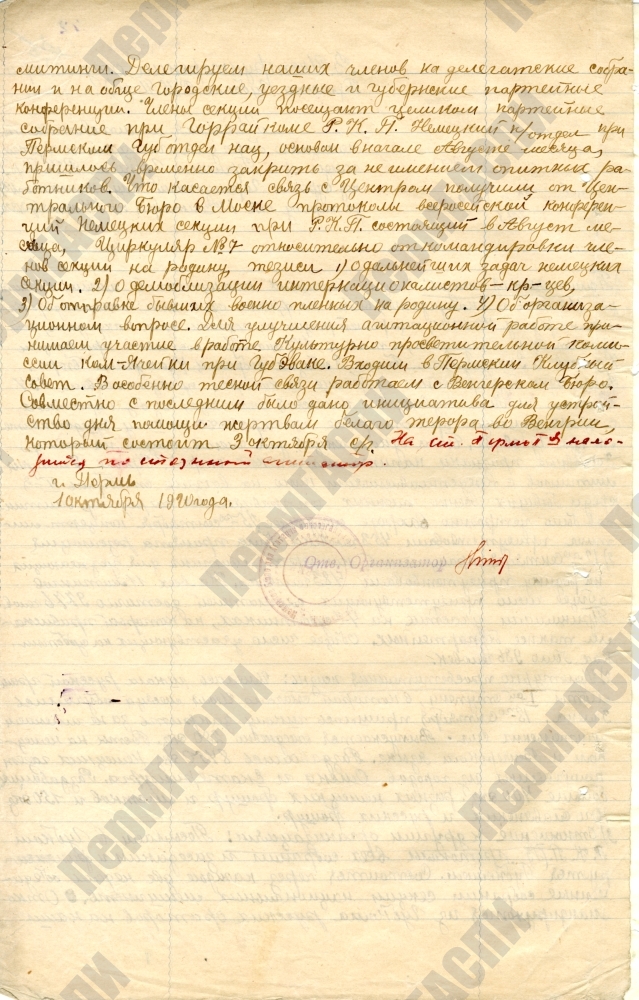 митинги. Делегируем наших членов на делегатские собра-
нии и на обще городские, уездные и губернские партейные
конференции. Члены секции посещают целиком партейные
собрание при Горрайкоме Р.К.П. Немецкий п/отдел при
Пермском Губотдел нац, основан вначале Августе месяца,
пришлось временно закрыть за неимением опитных ра-
ботников. Что касается связь с Центром получили от Цен-
трального Бюро в Москве протоколы всеросийской конферен-
ций Немецких секции при Р.К.П. состоящий в Август ме-
сяца, Циркуляр №7 относительно откомандировки чле-
нов секций на родину, тезиси 1) О дальнейших задач немецких
секции. 2) О демобилизации интернационалистов-кр-цев,
3) Об отправке бывших военно пленных на родину. 4) Об организа-
ционном вопросе. Для улучшения агитационной работе при-
нимаем участие в работе Культурно просветительной комис-
сии ком-Ячейки при Губэваке. Входим в Пермский Клубный
совет. В особенно тесной связи работаем с Венгерском Бюро.
Совместно с последним было дано инициатива для устрой-
ство дня помощи жертвам белаго терора во Венгрии,
который состоит 3 октября с/г. На ст. Пермь
г. Пермь
1 октября 1920 года.
Отв. Организатор
ПермГАСПИ